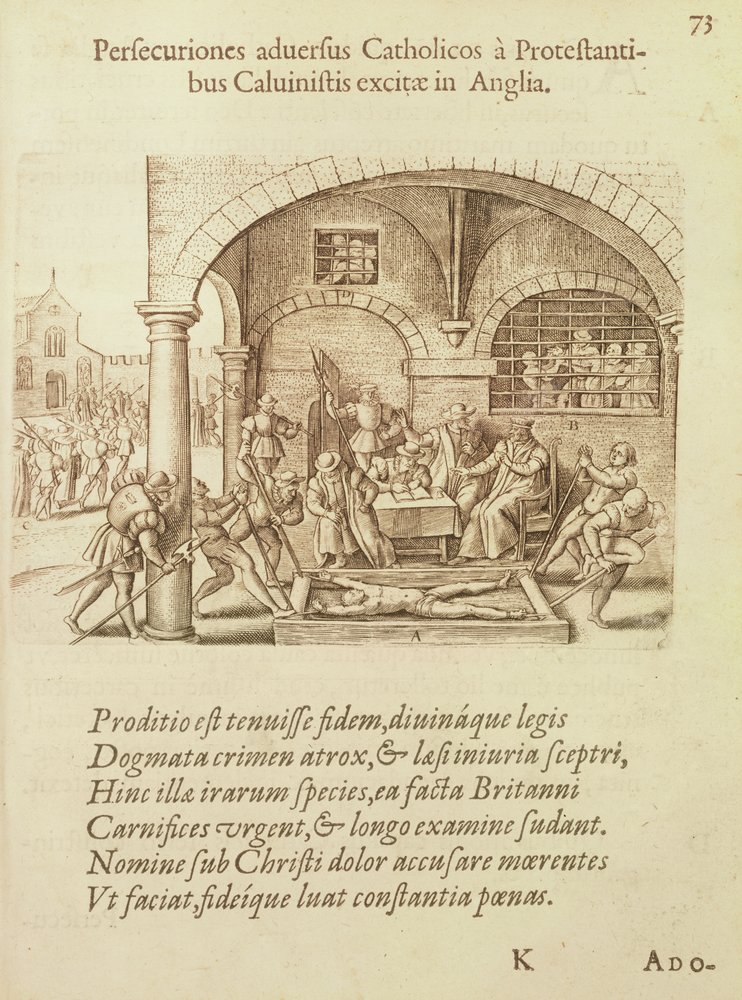 73
Perſecuriones aduerſus Catholicos à Proteſtanti-
bus Caluiniſtis excitæ in Anglia.
B
C
A
Proditio eſt tenuiſſe fidem, diuináque legis
Dogmata crimen atrox, & læſi iniuria ſceptri,
Hinc illæ irarum ſpecies, ea facta Britanni
Carnifices vrgent, & longo examine ſudant.
Nomine ſub Chriſti dolor accuſare mœrentes
Vt faciat, fideíque luat conſtantia pœnas.
K
ADO-